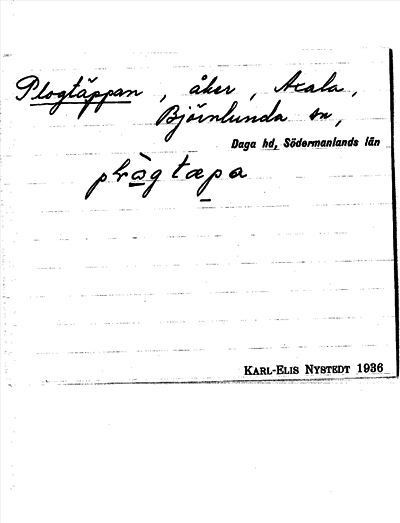 Plogtäppan, åker, Axala,
Björnlunda sn,
Daga hd, Södermanlands län
KARL-ELIS NYSTEDT 1936